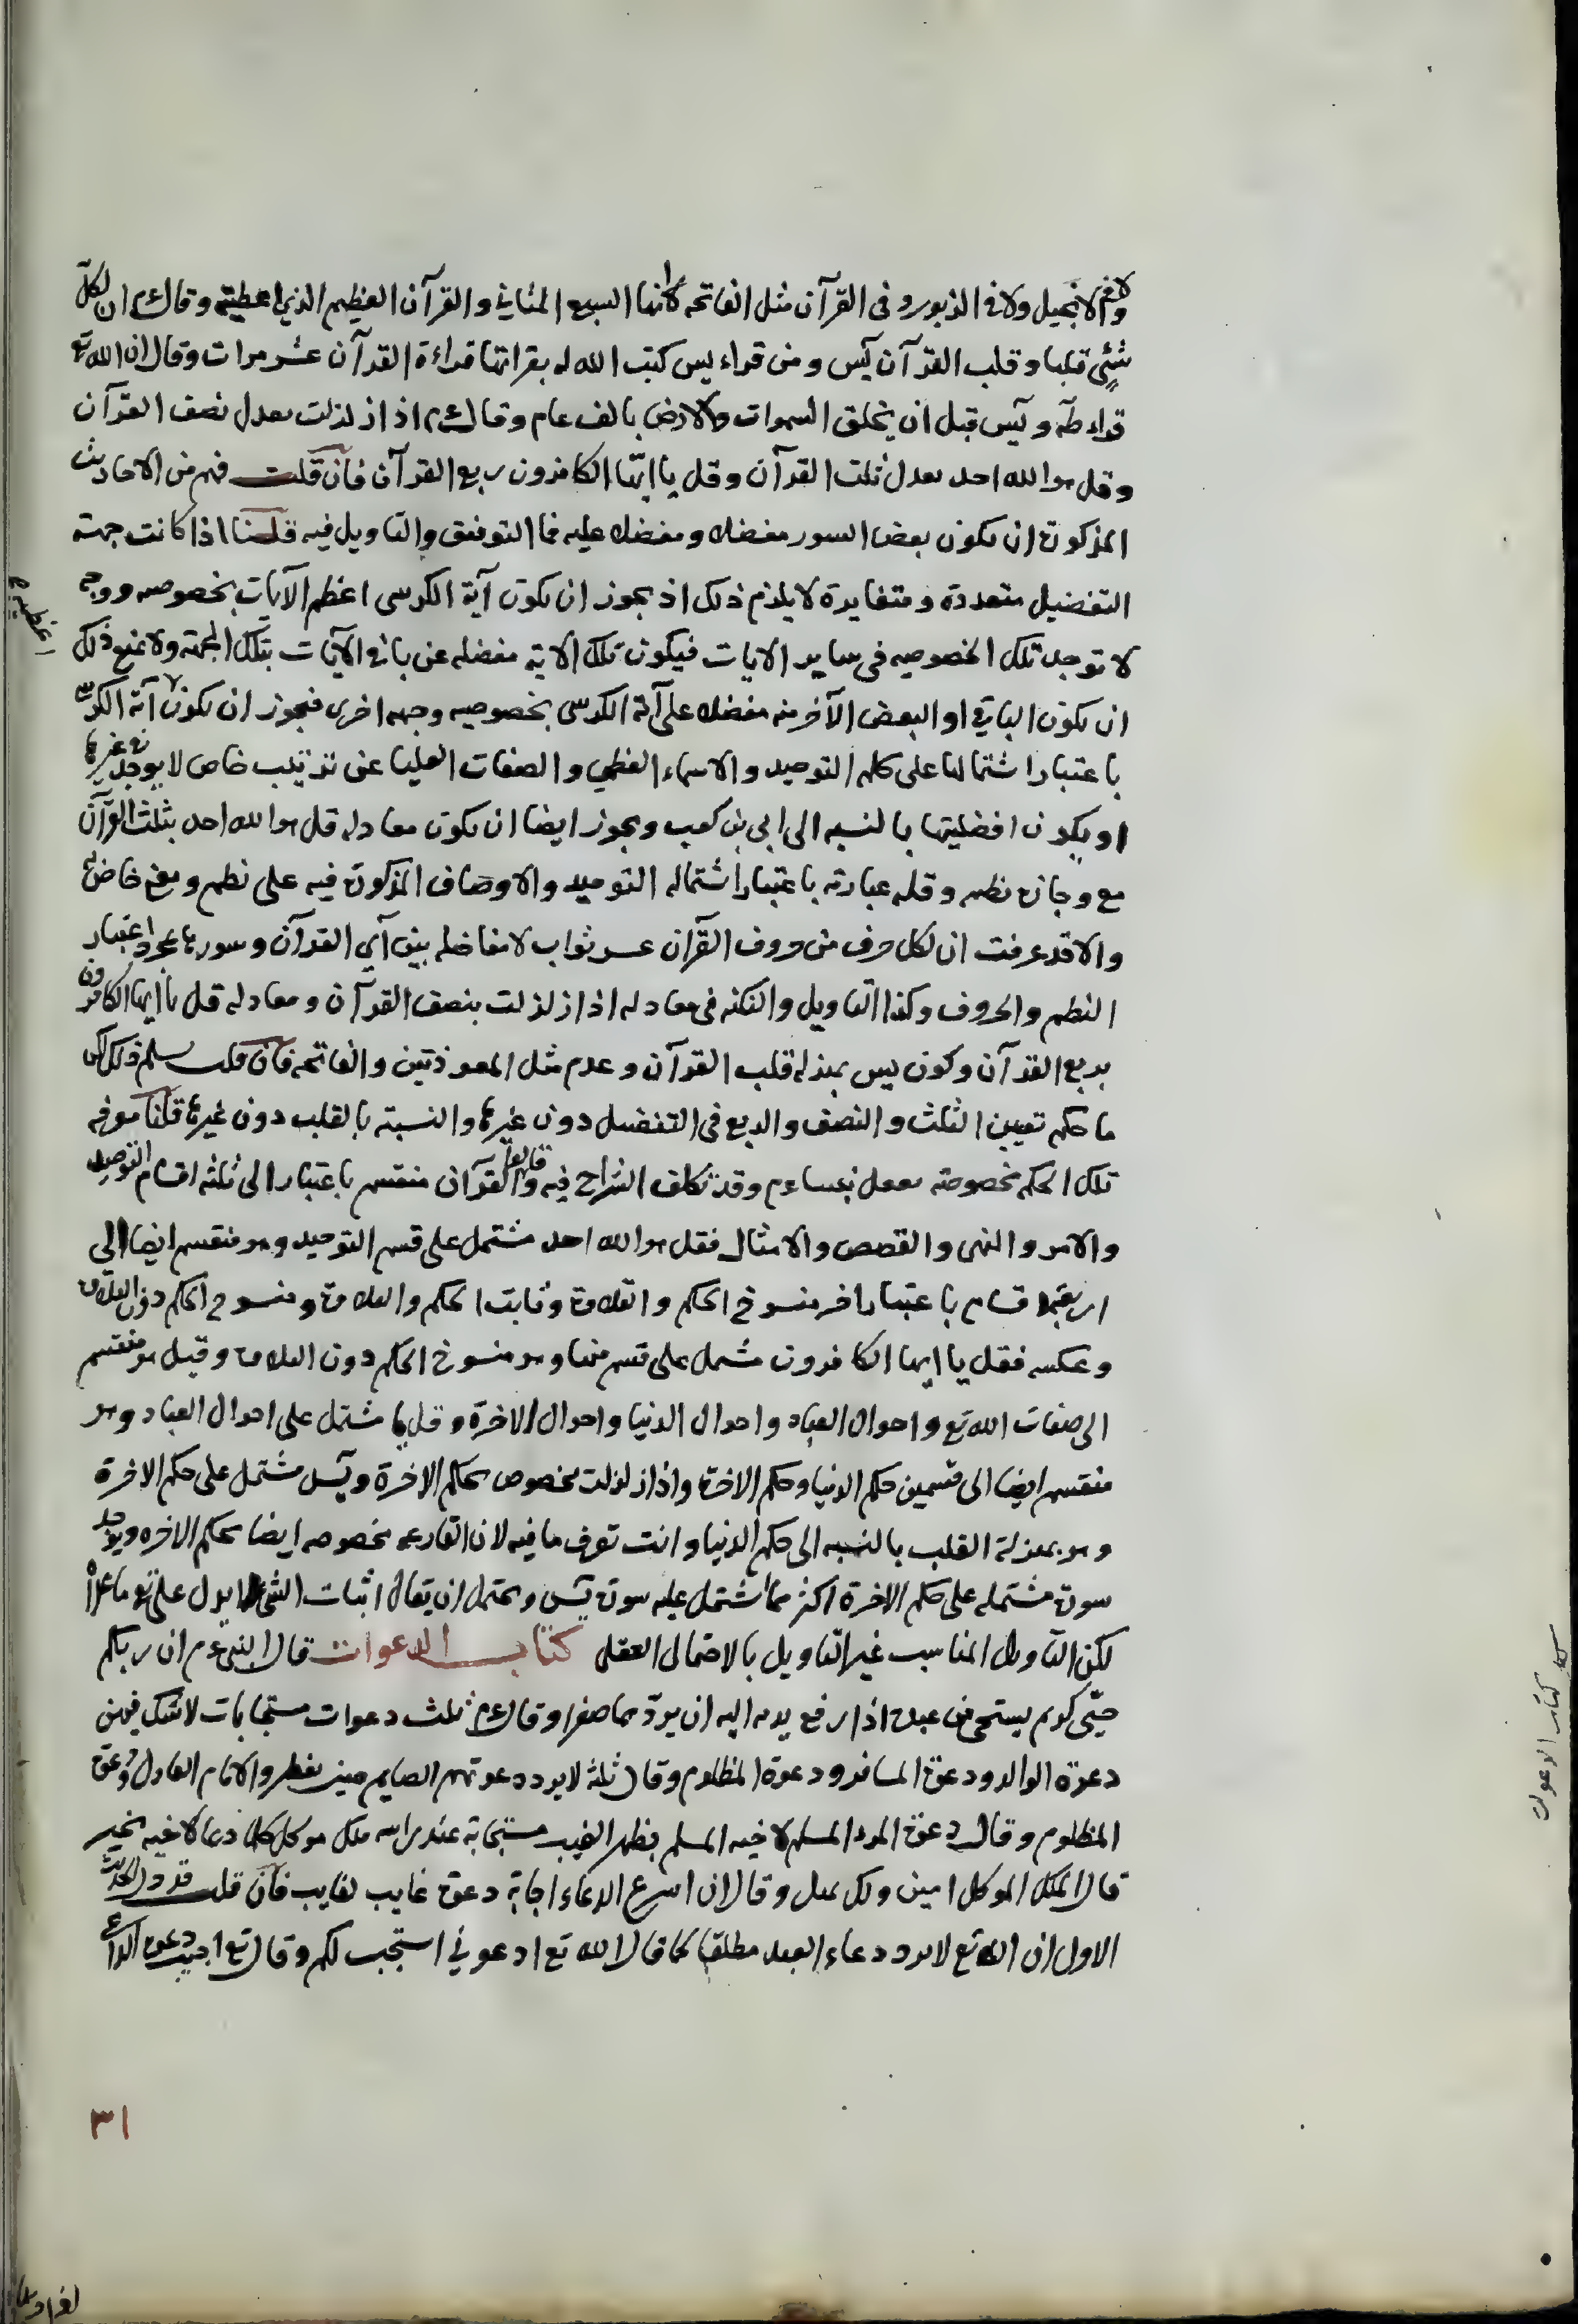 ولا في الانجيل ولا في الزبور و في القرآن مثل الفاتحه وانها السبع المثاني والقرآن العظيم الذي اعطيته وقال عم ان لكل
شئ قلبا وقلب القرآن يس ومن قراء يس كتب الله له بقرائتها قراءة القرآن عشر مرات وقال ان الله تع
قراء طه ويس قبل ان يخلق السموات والارض بالف عام وقال عم اذا زلزلت يعدل نصف القرآن
وقل هوا لله احد يعدل ثلث القرآن وقل يا ايها الكافرون ربع القرآن فان قلت فهم من الاحاديث
المذكورة ان يكون بعض السور مفضله ومفضله عليه فما التوفيق والتاويل فيه قلنا اذا كانت جهته
التفضيل متعددة ومتغايرة لا يلزم ذلك اذ يجوز ان يكون آية الكرسى اعظم الآيات بخصوصه ووجه
لا توجد تلك الخصوصيه فى ساير الايات فيكون تلك الاية مفضله عن باقي الآيات بتلك الجهته ولا يمنع ذلك
ان يكون الباقي او البعض الآخر منه مفضله على آية الكرسى بخصوصيه وجهه اخرى فيجوز ان يكون آية الكرسي
باعتبار اشتمالها على كلمه التوحيد والاسماء العظمي والصفات العليا عن ترتيب خاص لا يوجد في غيرها
او يكون افضليتها بالنسبه الى ابى بن كعب ويجوز ايضا ان يكون معادله قل هوا لله احد بثلث القرآن
مع وجازة نظمه وقله عبارته باعتبار اشتماله التوحيد والاوصاف المذكورة فيه على نظم و معنى خاص
والا قد عرفت ان لكل حرف من حروف القرآن عشر ثواب لا مفاضله بين آي القرآن وسورها بمجرد اعتبار
النظم والحروف وكذا التاويل والنكته فى معادله اذا زلزلت بنصف القرآن ومعادله قل يا ايها الكافرون
بربع القرآن وكون يس بمنزله قلب القرآن وعدم مثل المعوذتين والفاتحه فان قلت سلم ذلك لكن
ما حكم تعيين الثلث والنصف والربع فى التفضيل دون غيرها والنسبته بالقلب دون غيرها قلنا معرفه
تلك الحكم مخصوصته وقد تكلف الشراح فيه قالوا والقرآن منقسم باعتبار الى ثلثه اقسام التوحيد
والامر والنهى والقصص والامثال فقل هوا لله احد مشتمل على قسم التوحيد وهو منقسم ايضا الى
اربعه اقسام باعتبار اخر منسوخ الحكم والتلاوة وثابت الحكم والتلاوة ومنسوخ الحكم دون التلاوة
وعكسه فقل يا ايها الكافرون مشتمل على قسم منها وهو منسوخ الحكم دون التلاوة وقيل هو منقسم
الى صفات الله تع واحوال العباد واحوال الدنيا واحوال الاخرة وقل يا مشتمل على احوال العباد وهو
منقسم ايضا الى قسمين حكم الدنيا وحكم الاخرة واذا زلزلت مخصوص بحكم الاخرة ويس مشتمل على حكم الاخرة
وهو بمنزلة القلب بالنسبه الى حكم الدنيا وانت تعرف ما فيه لان القارعه مخصوصه ايضا بحكم الاخره ويوجد
سورة مشتمله على حكم الاخرة اكثر مما اشتمل عليه سورة يس ويحتمل ان يقال اثبات الشئ لا يدل على نفى ما عداه
لكن التاويل المناسب غير التاويل بالاحتمال العقلى كتاب الدعوات قال النبى عم ان ربكم
حيى كريم يستحى من عبده اذا رفع يديه اليه ان يردهما صفرا وقال عم ثلث دعوات مستجابات لا شك فيهن
دعوة الوالد ودعوة المسافر ودعوة المظلوم وقال ثلثه لا يرد دعوتهم الصايم حين يفطر والامام العادل ودعوة
المظلوم وقال دعوة المرء المسلم لاخيه المسلم بظهر الغيب مستجابة عند راسه ملك موكل كلما دعا لاخيه بخير
قال الملك الموكل امين ولك بمثل وقال ان اسرع الدعاء اجابة دعوة غايب لغايب فان قلت قد دل الحديث
الاول ان الله تع لا يرد دعاء العبد مطلقا كما قال الله تع ادعوني استجب لكم وقال تع اجيب دعوة الداع
٣١
كتاب الدعوات